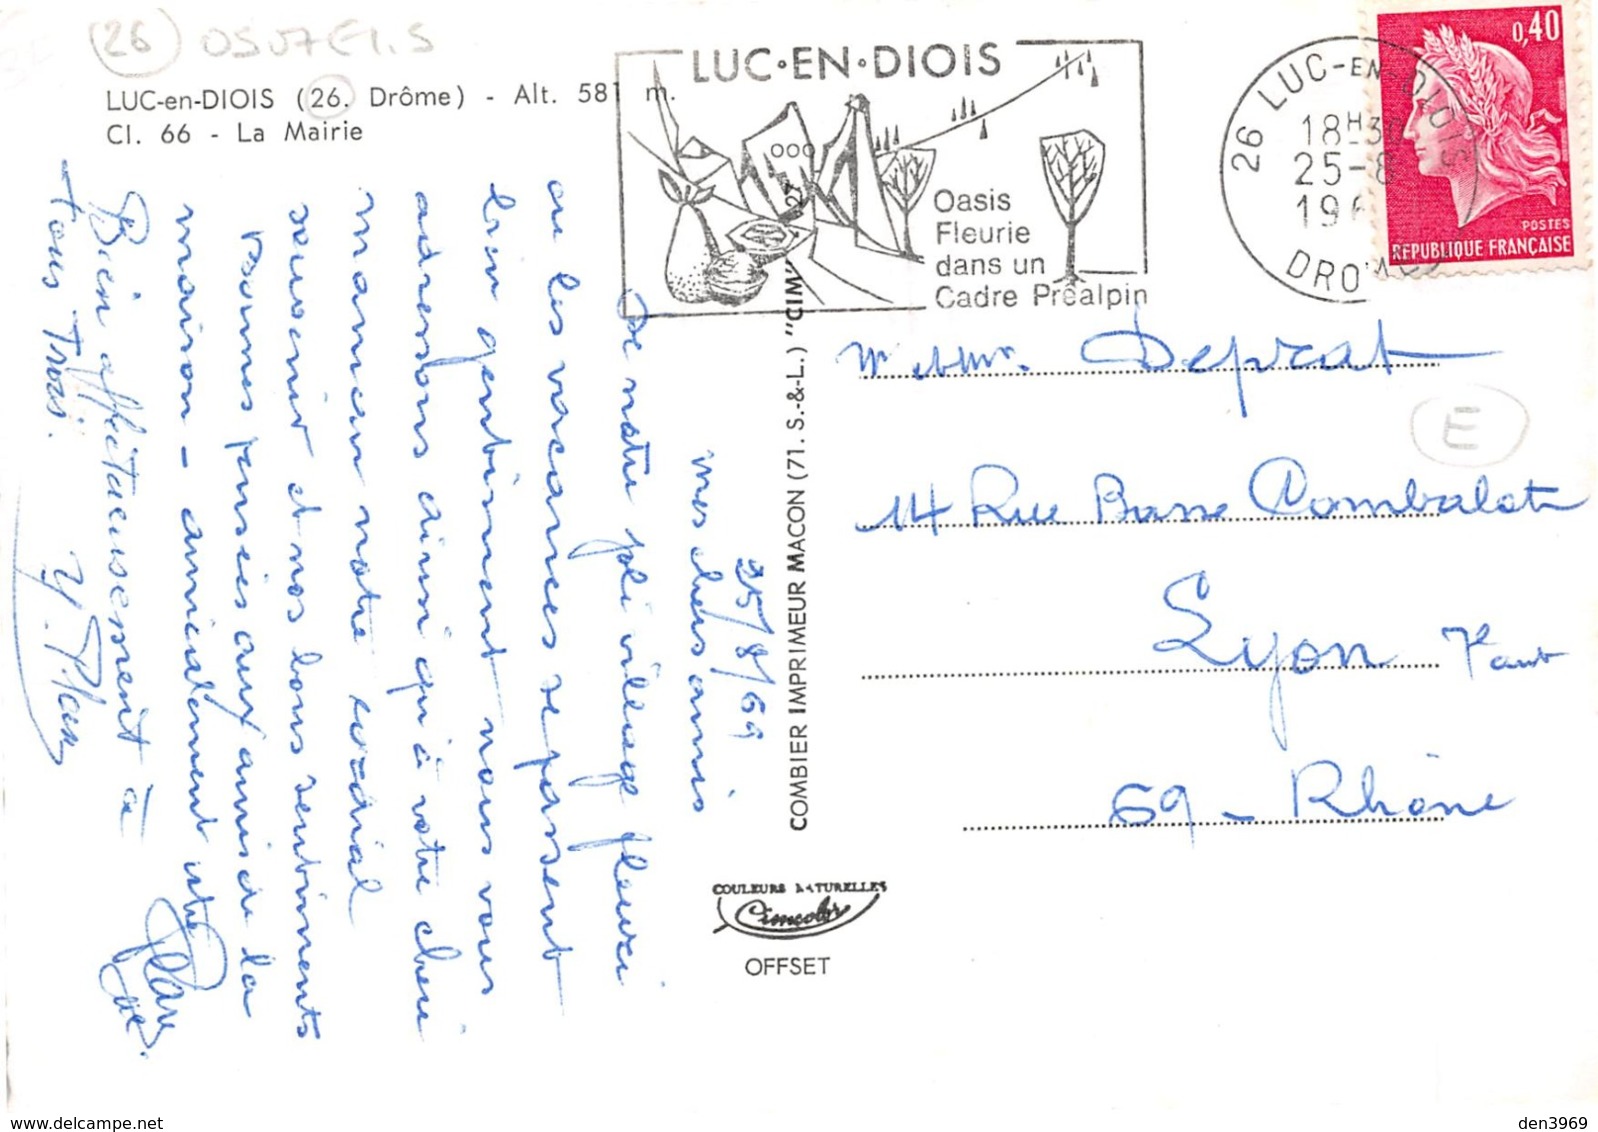 (26) OSU7E1.5
LUC-en-DIOIS (26. Drôme) - Alt. 581 m.
Cl. 66 - La Mairie
LUC•EN•DIOIS
Oasis
Fleurie
dans un
Cadre Préalpin
26 LUC-EN-DIOIS
18H30
25-8
196
DROME
0,40
POSTES
REPUBLIQUE FRANÇAISE
25/8/69
mes chers amis
De notre joli village fleuri
ou les vacances se passent
bien gentiment nous vous
adressons ainsi qu'à votre chère
maman notre cordial
souvenir et nos bons sentiments
bonnes pensées aux amis de la
maison - amicalement votre
Bien affectueusement à
tous Trois.
COMBIER IMPRIMEUR MACON (71. S.-&-L.) "CIM"
Mr et Mme. Deprat
E
14 Rue Basse Combalot
Lyon 7eme
69 - Rhône
COULEURS NATURELLES
Cimcolor
OFFSET
den3969